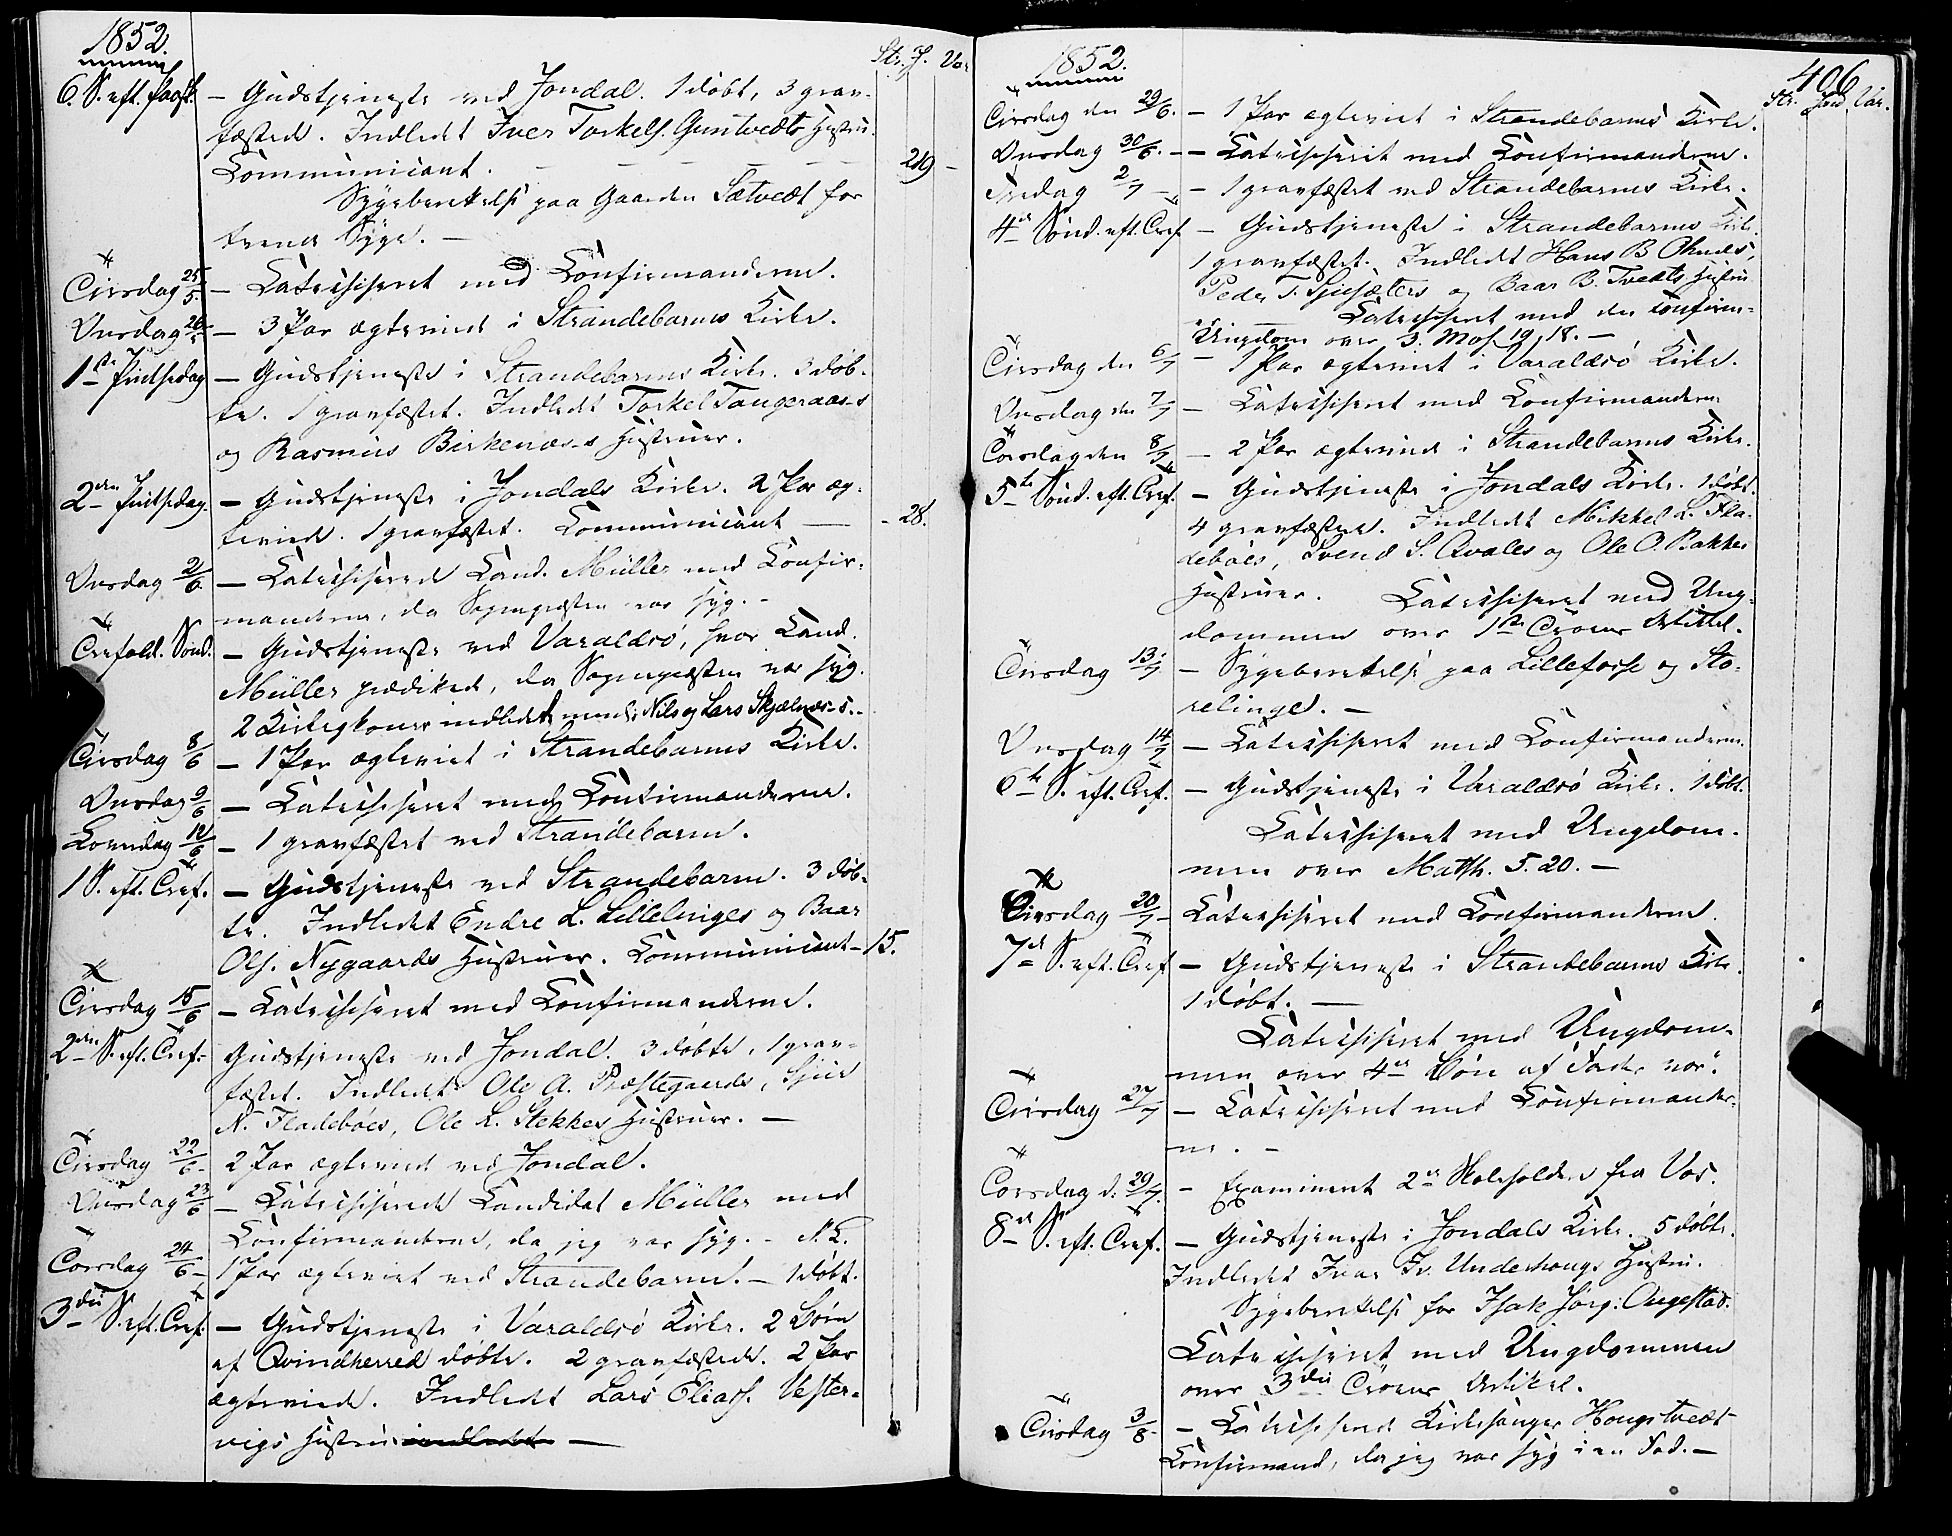 1852.
Str. J. Var
6. S. eft. Paask. - Gudstjeneste ved Jondal. 1 døbt, 3 grav-
fæstede. Indledt Iver Torkels. Guntvedts Hustru.
Communicant. - 29 -
Sygeberettelse paa Gaarden Sætvedt for
trende Syge. -
Tirsdag 25/5. - Catechiseret med Confirmanderne.
Onsdag 26/5 - 3 Par ægteviet i Strandebarms Kirke.
1ste Pintsedag - Gudstjeneste i Strandebarms Kirke. 3 døb-
te. 1 gravfæstet. Indledt Torkel Tangeraas-s
og Rasmus Birkenæs-s Hustruer.
2den Pintsedag. - Gudstjeneste i Jondals Kirke. 2 Par æg-
teviede. 1 gravfæstet. Communicant - - 28.
Onsdag 2/6. - Catechiserede Cand. Müller med Confir-
manderne, da Sognepræsten var syg. -
Trefold. Sønd. - Gudstjeneste ved Varaldsö, hvor Cand.
Müller prædikede, da Sognepræsten var syg.
2 Kirkegkoner indledt, nemlig Nils og Lars Skjelnæs-s. -
Tirsdag 8/6 - 1 Par ægteviet i Strandebarms Kirke.
Onsdag 9/6 - Catechiseret med Confirmanderne.
Løverdag 12/6 - 1 gravfæstet ved Strandebarm.
1 S. eft. Tref. - Gudstjeneste ved Strandebarm. 3 døb-
te. Indledt Endre L. Lillelinges og Baar
Ols. Nygaards Hustruer. Communicant - 15.
Tirsdag 15/6 - Catechiseret med Confirmanderne.
2den S. eft. Tref. - Gudstjeneste ved Jondal. 3 døbte, 1 grav-
fæstet. Indledt Ole A. Præstegaards, Sjur
N. Fladebøes, Ole L. Stekkes Hustruer. -
Tirsdag 22/6 - 2 Par ægteviede ved Jondal.
Onsdag 23/6 - Catechiserede Candidat Müller med
Confirmanderne, da jeg var syg. -
Torsdag 24/6 - 1 Par ægteviet ved Strandebarm. - 1 døbt.
3die S. eft. Tref. - Gudstjeneste i Varaldsö Kirke. 2 Børn
af Qvindherred døbte. 2 gravfæstede. 2 Par
ægteviede. Indledt Lars Eliass. Vester-
vigs Hustru indledt -
1852.
406
Str. Jond Var.
Tirsdag den 29/6. - 1 Par ægteviet i Strandebarms Kirke.
Onsdag 30/6. - Catechiseret med Confirmanderne.
Fredag 2/7 - 1 gravfæstet ved Strandebarms Kirke.
4de Sønd. eft. Tref. - Gudstjeneste i Strandebarms Kirke.
1 gravfæstet. Indledt Hans B. Omdes,
Peder T. Sjusæters og Baar B. Tvedts Hustru
er. Catechiseret med den confirm-
Ungdom over 3. Mos. 19, 18. -
Tirsdag den 6/7 - 1 Par ægteviet i Varaldsö Kirke.
Onsdag den 7/7 - Catechiseret med Confirmanderne
Torsdag den 8/7 - 2 Par ægteviede i Strandebarms Kirke.
5te Sønd. eft. Tref. - Gudstjeneste i Jondals Kirke. 1 døbt.
4 gravfæstede. Indledt Mikkel L. Fla-
debøes, Svend S. Qvales og Ole O. Bakkes
Hustruer. Catechiseret med Ung-
dommen over 1ste Troens Artikel.
Tirsdag 13/7 - Sygeberettelse paa Lillefosse og Sto-
relinge. -
Onsdag 14/7 - Catechiseret med Confirmanderne.
6te S. eft. Tref. - Gudstjeneste i Varaldsö Kirke. 1 døbt.
Catechiseret med Ungdom-
men over Matth. 5. 20. -
Tirsdag 20/7 - Catechiseret med Confirmanderne.
7de S. eft. Tref. - Gudstjeneste i Strandebarms Kirke.
1 døbt. -
Catechiseret med Ungdom-
men over 4de Bøn af Fader vor.
Tirsdag 27/7 - Catechiseret med Confirmander-
ne. -
Torsdag d. 29/7. - Examineret 2de Skoleholdere fra Vos.
8de S. eft. Tref. - Gudstjeneste i Jondals Kirke. 5 døbte.
Indledt Ivar Iv. Underhougs Hustru.
Sygeberettelse for Isak Jørg: Augestad.
Catechiseret med Ungdommen
over 3die Troens Artikel.
Tirsdag 3/8 - Catechiserede Kirkesanger Hougstvedt
Confirmand, da jeg var syg i en Fod. -